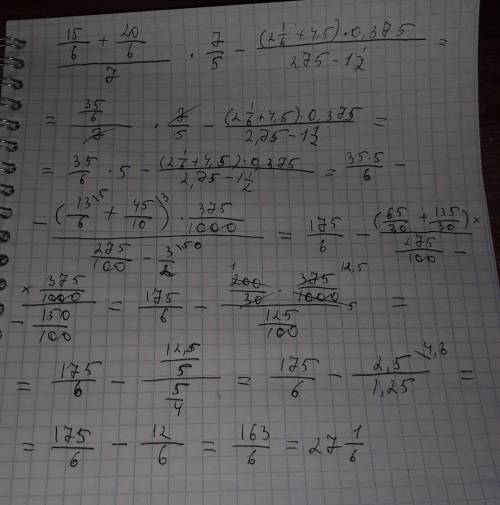 (15/6 + 20/6)/7 · 7/5 - ((2 1/6 + 4,5) · 0,375)/(275 - 1 1/2) =
= (35/6)/7 · 7/5 - ((2 1/6 + 4,5) · 0,375)/(2,75 - 1 1/2) =
= 35/6 · 5 - ((2 1/6 + 4,5) · 0,375)/(2,75 - 1 1/2) = 35·5/6 -
- ((13/6 \5 + 45/10 \3) · 375/1000)/(275/100 - 3/2 \50) = 175/6 - ((65/30 + 135/30) ×)/(275/100 -
(× 375/1000)/(- 150/100) = 175/6 - (200/30 · 375/1000)/(125/100) = 1 12,5 5
= 175/6 - (12,5/5)/(5/4) = 175/6 - 2,5/1,25 =
= 175/6 - 12/6 = 163/6 = 27 1/6